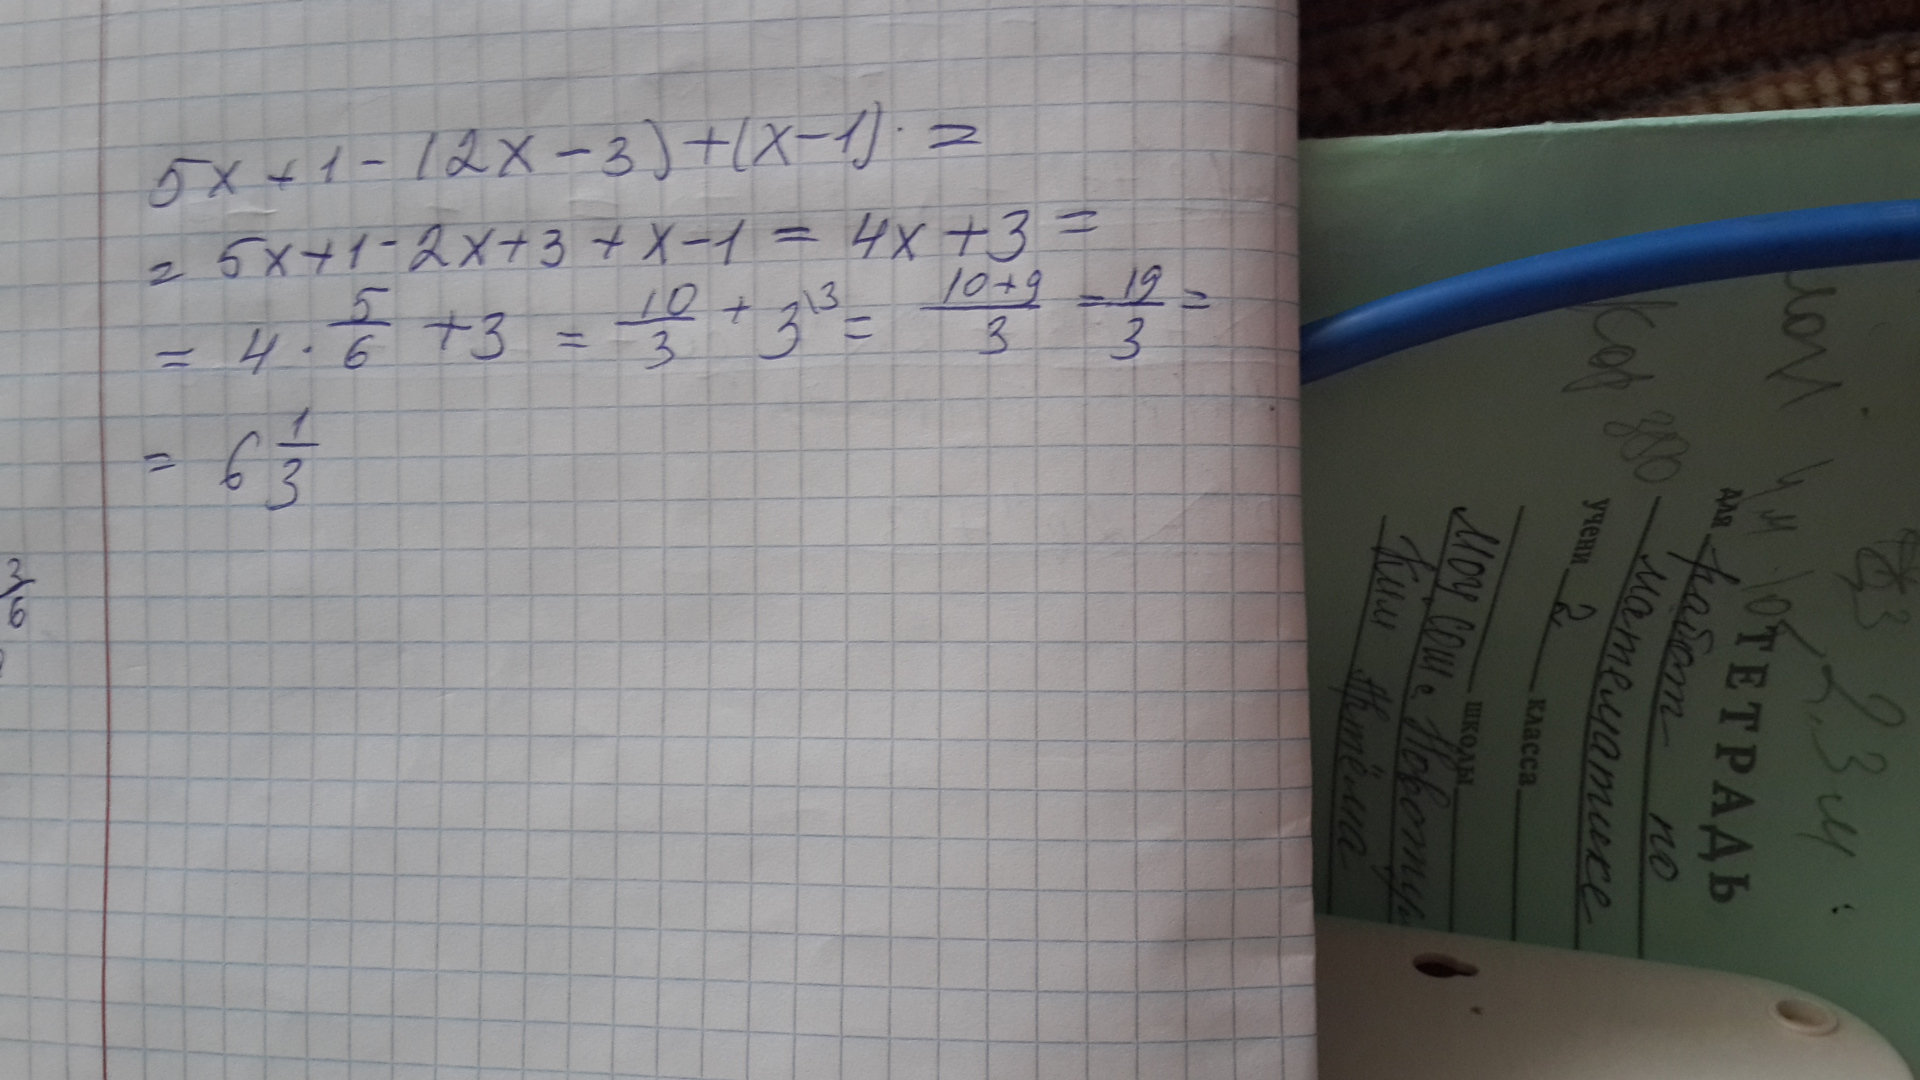 5x+1-(2x-3)+(x-1)·=
= 5x+1-2x+3+x-1 = 4x+3 =
= 4 · 5/6 +3 = 10/3 + 3\3 = 10+9/3 = 19/3 =
= 6 1/3
3/6
ТЕТРАДЬ
для работ по
математике
учени 2 класса
МОУ СОШ с. школы
Ким Артёма
2,3 м
390